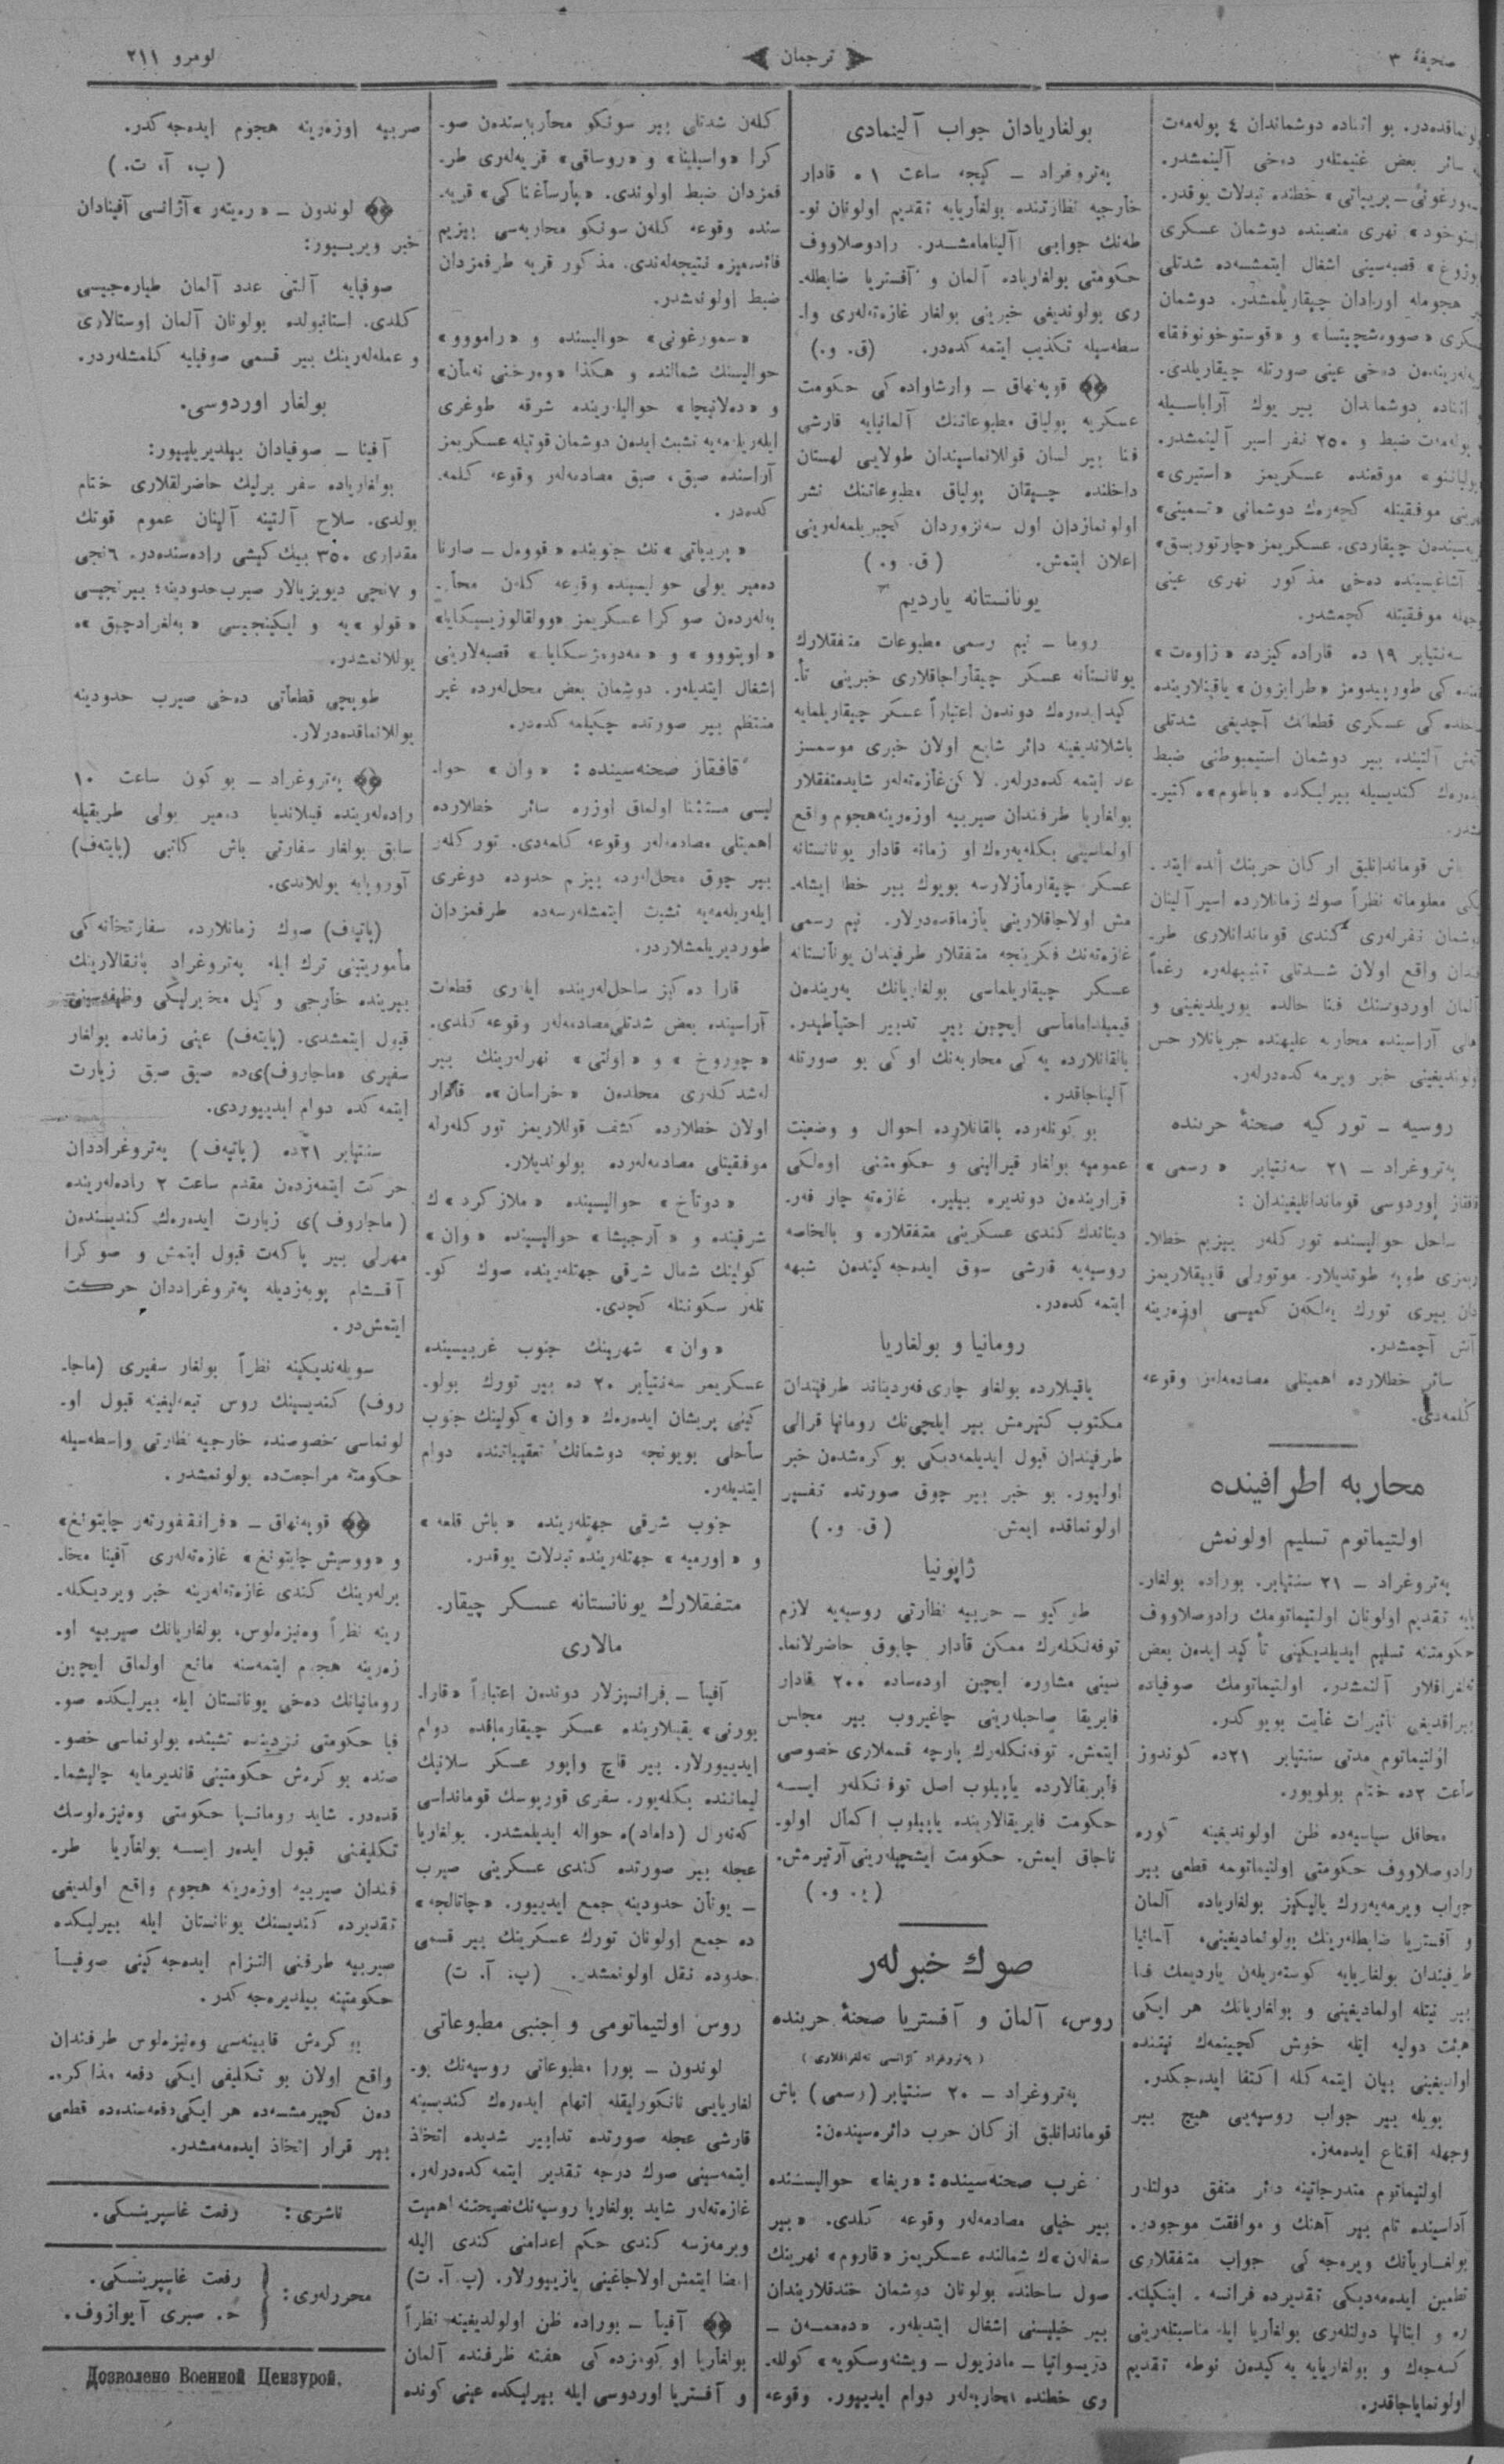 صحیفۀ ٣
ترجمان
نومرو ٢١١
اولنماقده‌در. بو اثناده دوشماندان ٤ پوله‌مه‌ت
سائر بعض غنیمتلر دەخی آلینمشدر.
خطنده تبدلات یوقدر.
نهری منصبنده دوشمان عسکری
قصبه‌سینی اشغال ایتمشسه‌ده شدتلی
هجومله اورادان چیقاریلمشدر. دوشمان
دەخی عینی صورتله چیقاریلدی.
اثناده دوشماندان بیر یوك آراباسیله
پوله‌مه‌ت ضبط و ٢٥٠ نفر اسیر آلینمشدر.
موقعنده عسکریمز «استیری»
نهرینی موفقیتله کچه‌رك دوشمانی
چیقاردی. عسکریمز
آشاغیسینده دەخی مذکور نهری عینی
وجهله موفقیتله کچمشدر.
سه‌نتیابر ١٩ ده قاراده‌کیزده «زاوەت»
طورپیدومز «طرابزون» یاقینلارینده
ساحلده‌کی عسکری قطعاتك آچدیغی شدتلی
آتش آلتینده بیر دوشمان استیمبوطنی ضبط
ایدەرەك کندیسیله بیرلیکده «باطوم»ه کتیر-
مشدر.
باش قوماندانلیق ارکان حربنك الده ایتد-
یکی معلوماته نظراً صوك زمانلارده اسیر آلینان
دوشمان نفرلەری کندی قوماندانلاری طر-
فندان واقع اولان شدتلی تنبیهلەره رغماً
آلمان اوردوسنك فنا حالده یوریلدیغینی و
اهالی آراسینده محاربه علیهنده جریانلار حس
اولوندیغینی خبر ویرمه‌کده‌درلەر.
روسیه ــ تورکیه صحنۀ حربنده
پەتروغراد ــ ٢١ سه‌نتیابر «رسمی»
قافقاز اوردوسی قوماندانلیغیندان:
ساحل حوالیسنده تورکلەر بیزیم خطلا-
ریمزی طوپه طوتدیلار. موتورلی قاییقلاریمز
دان بیری تورك یەلکەن کمیسی اوزەرینه
آتش آچمشدر.
سائر خطلارده اهمیتلی مصادمه‌لەر وقوعه
کلمه‌دی.
محاربه اطرافینده
اولتیماتوم تسلیم اولونمش
پەتروغراد ــ ٢١ سنتیابر. بوراده بولغار-
یایه تقدیم اولونان اولتیماتومك رادوصلاووف
حکومتنه تسلیم ایدیلدیکینی تأکید ایدەن بعض
تلغرافلار آلنمشدر. اولتیماتومك صوفیاده
بیراقدیغی تأثیرات غایت بویوکدر.
اولتیماتوم مدتی سنتیابر ٢١ده کوندوز
ساعت ٢ده ختام بولویور.
محافل سیاسیه‌ده ظن اولوندیغینه کوره
رادوصلاووف حکومتی اولتیماتومه قطعی بیر
جواب ویرمه‌یەرك یالیکیز بولغاریاده آلمان
و آفستریا ضابطلەرینك بولونمادیغینی، آلمانیا
طرفیندان بولغاریایه کوستەریلەن یاردیمك فنا
بیر نیتله اولمادیغینی و بولغاریانك هر ایکی
هیئت دولیه ایله خوش کچینمەك نیتنده
اولدیغینی بیان ایتمه‌کله اکتفا ایدەجکدر.
بویله بیر جواب روسیه‌یی هیچ بیر
وجهله اقناع ایدەمەز.
اولتیماتوم مندرجاتینه دائر متفق دولتلەر
آراسینده تام بیر آهنك و موافقت موجوددر.
بولغاریانك ویرەجه‌کی جواب متفقلاری
تطمین ایدەمه‌دیکی تقدیرده فرانسه، اینکیلته-
ره و ایتالیا دولتلەری بولغاریا ایله مناسبتلەرینی
کسه‌جەك و بولغاریایه یه‌کیدەن نوطه تقدیم
اولونمایاجاقدر.
بولغاریادان جواب آلینمادی
پەتروغراد ــ کیجه ساعت ١ه قادار
خارجیه نظارتنده بولغاریایه تقدیم اولونان نو-
طەنك جوابی آلینامامشدر. رادوصلاووف
حکومتی بولغاریاده آلمان و آفستریا ضابطلە-
ری بولوندیغی خبرینی بولغار غازەتەلەری وا-
سطه‌سیله تکذیب ایتمه‌کده‌در. (ق. و.)
قوپەنهاق ــ وارشاواده‌کی حکومت
عسکریه پولیاق مطبوعاتنك آلمانیایه قارشی
فنا بیر لسان قوللانماسیندان طولایی لهستان
داخلنده چیقان پولیاق مطبوعاتنك نشر
اولونمازدان اول سەنزوردان کچیریلمەلەرینی
اعلان ایتمش. (ق. و.)
یونانستانه یاردیم
روما ــ نیم رسمی مطبوعات متفقلارك
یونانستانه عسکر چیقاراجاقلاری خبرینی تأ-
کید ایدەرەك دوندەن اعتباراً عسکر چیقاریلمایه
باشلاندیغینه دائر شایع اولان خبری موسمسز
عد ایتمه‌کده‌درلەر. لاکن غازەتەلەر شاید متفقلار
بولغاریا طرفندان صیربیه اوزەرینه هجوم واقع
اولماسینی بکله‌یەرەك او زمانه قادار یونانستانه
عسکر چیقارمازلارسه بویوك بیر خطا ایشلە-
مش اولاجاقلارینی یازماقده‌درلار. نیم رسمی
غازەتەنك فکرینجه متفقلار طرفیندان یونانستانه
عسکر چیقاریلماسی بولغاریانك یەریندەن
قیمیلداماماسی ایچین بیر تدبیر احتیاطیدر.
بالقانلارده یه‌کی محاربەنك اوکی بو صورتله
آلیناجاقدر.
بو کونلەرده بالقانلارده احوال و وضعیت
عمومیه بولغار قیرالینی و حکومتنی اولکی
قراریندەن دوندیره بیلیر. غازەته چار فەر-
دیناندك کندی عسکرینی متفقلاره و بالخاصه
روسیه‌یه قارشی سوق ایدەجه‌کیندەن شبهه
ایتمه‌کده‌در.
رومانیا و بولغاریا
یاقینلارده بولغار چاری فەردیناند طرفیندان
مکتوب کتیرمش بیر ایلچی‌نك رومانیا قرالی
طرفیندان قبول ایدیلمه‌دیکی بوکرەشدەن خبر
اولییور. بو خبر بیر چوق صورتده تفسیر
اولونماقده ایمش. (ق. و.)
ژاپونیا
طوکیو ــ حربیه نظارتی روسیه‌یه لازم
توفەنکلەرك ممکن قادار چابوق حاضرلانما-
سینی مشاوره ایچین اودەساده ٢٠٠ قادار
فابریقا صاحبلەرینی چاغیروب بیر مجلس
ایتمش. توفەنکلەرك پارچه قسملاری خصوصی
فابریقالارده یاپیلوب اصل توفنکلەر ایسه
حکومت فابریقالارینده یاپیلوب اکمال اولو-
ناجاق ایمش. حکومت ایشچیلەرینی آرتیرمش.
صوك خبرلەر
روس، آلمان و آفستریا صحنۀ حربنده
(پەتروغراد آژانسی تەلغرافلاری)
پەتروغراد ــ ٢٠ سنتیابر (رسمی) باش
قوماندانلیق ارکان حرب دائره‌سیندەن:
غرب صحنه‌سینده: «ریغا» حوالیسنده
بیر خیلی مصادمه‌لەر وقوعه کلدی. «بیر
شمالنده عسکریمز نهرینك
صول ساحلنده بولونان دوشمان خندقلاریندان
بیر خیلیسنی اشغال ایتدیلەر.
ری خطنده محاربه‌لەر دوام ایدییور. وقوعه
کلەن شدتلی بیر سونکو محاربه‌سندەن صو-
کرا «واسیلینا» و «روساقی» قریه‌لەری طر-
فمزدان ضبط اولوندی. قریه-
سنده وقوعه کلەن سونکو محاربه‌سی بیزیم
فائده‌میزه نتیجه‌لەندی. مذکور قریه طرفمزدان
ضبط اولونمشدر.
«سمورغونی» حوالیسنده و
حوالیسنك شمالنده و هکذا
و حوالیلرینده شرقه طوغری
ایلەریله‌مه‌یه تشبث ایدەن دوشمان قوتیله عسکریمز
آراسنده صیق، صیق مصادمه‌لەر وقوعه کلمه-
کده‌در.
«پریپاتی»نك جنوبنده «قووەل ــ صارنا
دەمیر یولی حوالیسنده وقوعه کلەن محا-
به‌لەردەن صوکرا عسکریمز
قصبه‌لارینی
اشغال ایتدیلەر. دوشمان بعض محللەرده غیر
منتظم بیر صورتده چکیلمه‌کده‌در.
قافقاز صحنه‌سینده: «وان» حوا-
لیسی مستثنا اولماق اوزره سائر خطلارده
اهمیتلی مصادمه‌لەر وقوعه کلمه‌دی. تورکلەر
بیر چوق محللەرده بیزیم حدوده دوغری
ایلەریله‌مه‌یه تشبث ایتمشلەرسه‌ده طرفمزدان
طوردیریلمشلاردر.
قارا ده‌کیز ساحللەرینده ایلەری قطعات
آراسینده بعض شدتلی مصادمه‌لەر وقوعه کلدی.
«چوروخ» و «اولتی» نهرلەرینك بیر
لەشدکلەری محلدەن «خراسان»ه قادار
اولان خطلارده کشف قوللاریمز تورکلەرله
موفقیتلی مصادمه‌لەرده بولوندیلار.
«دوتاخ» حوالیسنده «ملازکرد»ك
شرقینده و «آرجیشا» حوالیسینده «وان»
کولینك شمال شرقی جهتلەرینده صوك کو-
نلەر سکونتله کچدی.
«وان» شهرینك جنوب غربیسینده
عسکریمز سه‌نتیابر ٢٠ ده بیر تورك بولو-
کینی پریشان ایدەرەك «وان» کولینك جنوب
ساحلی بویونجه دوشمانك تعقیباتنده دوام
ایتدیلەر.
جنوب شرقی جهتلەرینده «باش قلعه»
و «اورمیه» جهتلەرینده تبدلات یوقدر.
متفقلارك یونانستانه عسکر چیقار-
مالاری
آفینا ــ فرانسیزلار دوندەن اعتباراً «قارا-
بورنی» یقینلارینده عسکر چیقارماقده دوام
ایدییورلار. بیر قاچ واپور عسکر سلانیك
لیماننده بکله‌یور. سفری قورپوسك قومانداسی
کەنەرال (داماد)ه حواله ایدیلمشدر. بولغاریا
عجله بیر صورتده کندی عسکرینی صیرب
ــ یونان حدودینه جمع ایدییور. «چاتالجه»
ده جمع اولونان تورك عسکرینك بیر قسمی
حدوده نقل اولونمشدر. (پ. آ. ت)
روس اولتیماتومی و اجنبی مطبوعاتی
لوندون ــ بورا مطبوعاتی روسیەنك بو-
لغاریایی نانکورلیقله اتهام ایدەرەك کندیسینه
قارشی عجله صورتده تدابیر شدیده اتخاذ
ایتمەسینی صوك درجه تقدیر ایتمه‌کده‌درلەر.
غازەتەلەر شاید بولغاریا روسیەنك نصیحتنه اهمیت
ویرمەزسه کندی حکم اعدامنی کندی الیله
امضا ایتمش اولاجاغینی یازییورلار. (پ. آ. ت)
آفینا ــ بوراده ظن اولولدیغینه نظراً
بولغاریا اوکوزده‌کی هفته ظرفنده آلمان
و آفستریا اوردوسی ایله بیرلیکده عینی کونده
صربیه اوزەرینه هجوم ایدەجه‌کدر.
(پ. آ. ت.)
لوندون ــ «رەیتەر» آژانسی آفینادان
خبر ویرییور:
صوفیایه آلتی عدد آلمان طیاره‌جیسی
کلدی. استانبولده بولونان آلمان اوستالاری
و عمله‌لەرینك بیر قسمی صوفیایه کلمشلەردر.
بولغار اوردوسی.
آفینا ــ صوفیادان بیلدیریلییور:
بولغاریاده سفر برلیك حاضرلقلاری ختام
بولدی. سلاح آلتینه آلینان عموم قوتك
مقداری ٣٥٠ بیك کیشی راده‌سنده‌در. ٦نجی
و ٧نجی دیویزیالار صیرب حدودینه؛ بیرنجیسی
«قولو»یه و ایکینجیسی «بەلغرادچیق»ه
یوللانمشدر.
طوپچی قطعاتی دەخی صیرب حدودینه
یوللانماقده‌درلار.
پەتروغراد ــ بو کون ساعت ١٠
راده‌لەرینده فینلاندیا دەمیر یولی طریقیله
سابق بولغار سفارتی باش کاتبی (پایتەف)
آوروپایه یوللاندی.
(پایتەف) صوك زمانلارده سفارتخانه‌کی
مأموریتینی ترك ایله پەتروغراد بانقالارینك
بیرینده خارجی وکیل مخبرلیکی وظیفه‌سینی
قبول ایتمشدی. (پایتەف) عینی زمانده بولغار
سفیری (ماجاروف)ی‌ده صیق صیق زیارت
ایتمه‌کده دوام ایدییوردی.
سنتیابر ٢١ده (پایتەف) پەتروغراددان
حرکت ایتمەزدەن مقدم ساعت ٢ راده‌لەرینده
(ماجاروف)ی زیارت ایدەرەك کندیسندەن
مهرلی بیر پاکەت قبول ایتمش و صوکرا
آقشام پویەزدیله پەتروغراددان حرکت
ایتمش‌در.
سویله‌ندیکینه نظراً بولغار سفیری (ماجا-
روف) کندیسینك روس تبعه‌لیغینه قبول او-
لونماسی خصوصنده خارجیه نظارتی واسطه‌سیله
حکومته مراجعت‌ده بولونمشدر.
قوپەنهاق ــ «فرانقفورتەر چایتونغ»
و «ووسیش چایتونغ» غازەتەلەری آفینا مخا-
برلەرینك کندی غازەتەلەرینه خبر ویردیکله-
رینه نظراً وەنیزەلوس، بولغاریانك صیربیه او-
زەرینه هجوم ایتمەسنه مانع اولماق ایچین
رومانیانك دەخی یونانستان ایله بیرلیکده صو-
فیا حکومتی نزدینده تشبثده بولونماسی خصو-
صنده بوکرەش حکومتینی قاندیرمایه چالیشما-
قده‌در. شاید رومانیا حکومتی وەنیزەلوسك
تکلیفنی قبول ایدەر ایسه بولغاریا طر-
فندان صیربیه اوزەرینه هجوم واقع اولدیغی
تقدیرده کندیسنك یونانستان ایله بیرلیکده
صیربیه طرفنی التزام ایدەجه‌کینی صوفیا
حکومتینه بیلدیرەجه‌کدر.
بوکرەش قابینه‌سی وەنیزەلوس طرفندان
واقع اولان بو تکلیفی ایکی دفعه مذاکره-
دەن کچیرمشسه‌ده هر ایکی دفعه‌سنده‌ده قطعی
بیر قرار اتخاذ ایدەمه‌مشدر.
ناشری: رفعت غاسپرینسکی.
محررلەری: رفعت غاسپرینسکی.
ح. صبری آیوازوف.
Дозволено Военной Цензурой.